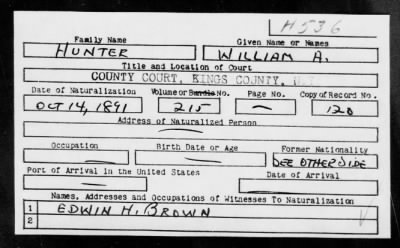 H536
Family Name Given Name or Names
HUNTER WILLIAM A.
Title and Location of Court
COUNTY COURT, KINGS COUNTY, N.Y.
Date of Naturalization Volume or Bundle No. Page No. Copy of Record No.
OCT 14, 1891 215 — 120
Address of Naturalized Person
—
Occupation Birth Date or Age Former Nationality
— — SEE OTHER SIDE
Port of Arrival in the United States Date of Arrival
— —
Names, Addresses and Occupations of Witnesses To Naturalization
1 EDWIN H. BROWN
2